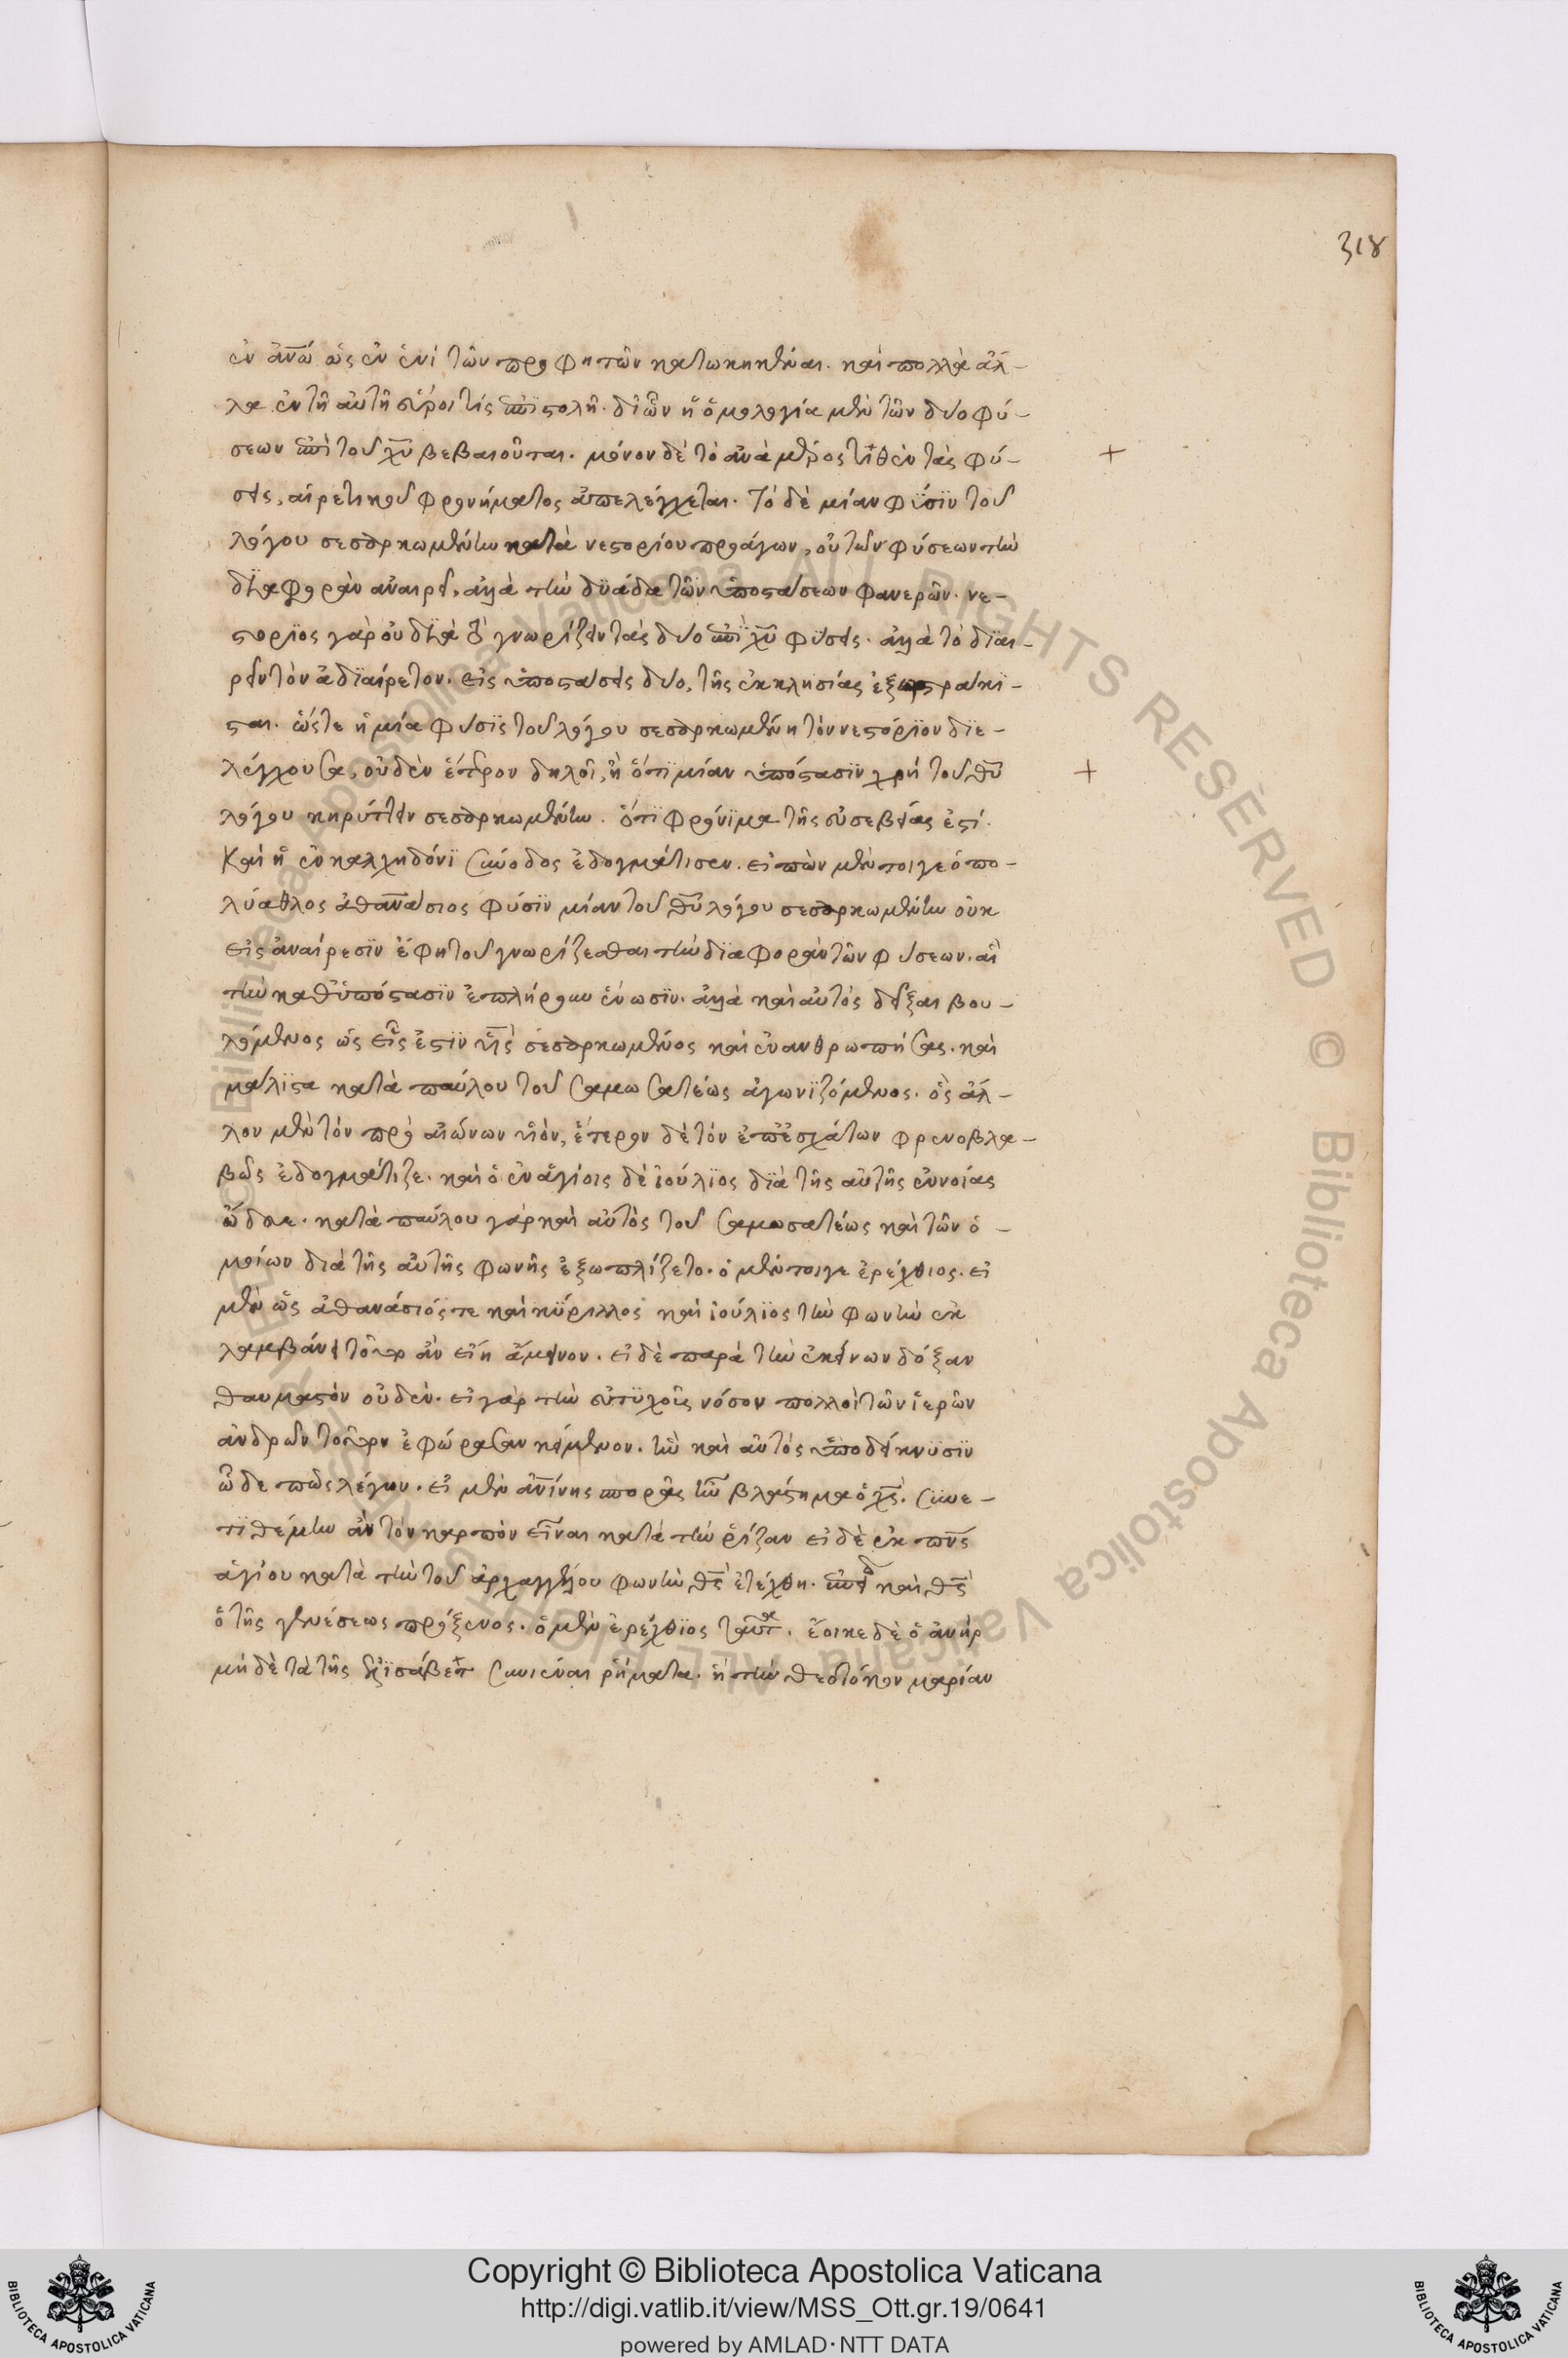 318
ἐν ἀνω ὡς ἐν ἑνὶ τῶν προφητῶν κατωκηκέναι. καὶ πολλὰ ἀλ-
λα ἐν τῆ αὐτῆ εὕροι τίς ἐπιστολῆ. δι ὧν ἡ ὁμολογία μὲν τῶν δυο φύ-
σεων ἐπὶ τοῦ χυ βεβαιοῦται. μόνον δὲ τὸ ἀνὰ μέρος τιθέν τὰς φύ-
σεις, αἱρετικοῦ φρονήματος ἀπελέγχεται. Τὸ δὲ μίαν φύσϊν τοῦ
λόγου σεσαρκωμένην κατὰ νεστορίου προάγων, οὐ τῶν φύσεων τὴν
διαφορὰν ἀναιρεῖ, ἀλλὰ τὴν δϋάδα τῶν ὑποστάσεων φανερῶν. νε-
στορϊος γὰρ οὐ διὰ τὸ γνωρίζειν τὰς δυο ἐπὶ χυ φύσεις. ἀλλὰ τὸ δϊαι-
ρεῖν τὸν ἀδϊαίρετον. εἰς ὑποστάσεις δυο, τῆς ἐκκλησίας ἐξωστράκι-
σται. ὥστε ἡ μία φύσϊς τοῦ λόγου σεσαρκωμένη τὸν νεστόρϊον δϊε-
λέγχουσα, οὐδὲν ἕτερον δηλοῖ, ἢ ὅτϊ μίαν ὑπόστασϊν χρὴ τοῦ θυ
λόγου κηρύττειν σεσαρκωμένην. ὅπϊ φρόνϊμα τῆς εὐσεβείας ἐστί.
Καὶ ἡ ἐν καλχηδόνϊ σύνοδος ἐδογμάτισεν. εἰπὼν μέν τοιγε ὁ πο-
λύαθλος ἀθανάσιος φύσϊν μίαν τοῦ θυ λόγου σεσαρκωμένην οὐκ
εἰς ἀναίρεσϊν ἔφη τοῦ γνωρίζεσθαι τὴν δϊαφορὰν τῶν φύσεων. αἳ
τὴν καθ' ὑπόστασϊν ἐπλήρουν ἕνωσϊν. ἀλλὰ καὶ αὐτὸς δεῖξαι βου-
λόμενος ὡς εἷς ἐστϊν ὑς σεσαρκωμένος καὶ ἐνανθρωπήσας. καὶ
μάλϊστα κατὰ παύλου τοῦ σαμωσατέως ἀγωνϊζόμενος. ὃς ἄλ-
λον μὲν τὸν πρὸ αἰώνων υἱόν, ἕτερον δὲ τὸν ἐπ' ἐσχάτων φρενοβλα-
βῶς ἐδογμάτιζε. καὶ ὁ ἐν ἁγίοις δὲ ἰούλϊος δϊὰ τῆς αὐτῆς ἐννοίας
ὥδευε. κατὰ παύλου γὰρ καὶ αὐτὸς τοῦ σαμοσατέως καὶ τῶν ὁ-
μοίων διὰ τῆς αὐτῆς φωνῆς ἐξωπλίζετο. ὁ μέν τοιγε ἐρέχθιος. εἰ
μὲν ὡς ἀθανάσιός τε καὶ κύριλλος καὶ ἰούλϊος τὴν φωνὴν ἐκ
λαμβάνει τοῦτο ἀν εἴη ἄμεινον. εἰ δὲ παρὰ τὴν ἐκείνων δόξαν
θαυμαστὸν οὐδέν. εἰ γὰρ τὴν εὐτϋχοῦς νόσον πολλοὶ τῶν ἱερῶν
ἀνδρῶν τοῦτον ἐφώρασαν κείμενον. ἣν καὶ αὐτὸς ὑποδείκνϋσϊν
ὧδε πως λέγων. εἰ μὲν ἀπό τινης σπορᾶς ἦν βλάστημα ὁ χς. συνε-
τϊθέμην ἂν τὸν καρπὸν εἶναι κατὰ τὴν ῥίζαν εἰ δὲ ἐκ πνς
ἁγίου κατὰ τὴν τοῦ ἀρχαγγέλου φωνὴν θς ἐτέχθη. ἐπειδ καὶ θς
ὁ τῆς γενέσεως πρόξενος. ὁ μὲν ἐρέχθϊος ταῦτα. ἔοικε δὲ ὁ ἀνὴρ
μὴ δὲ τὰ τῆς ἐλϊσάβετ συνιέναι ῥήματα. ἡ τὴν θεοτόκον μαρίαν
Copyright © Biblioteca Apostolica Vaticana
http://digi.vatlib.it/view/MSS_Ott.gr.19/0641
powered by AMLAD·NTT DATA